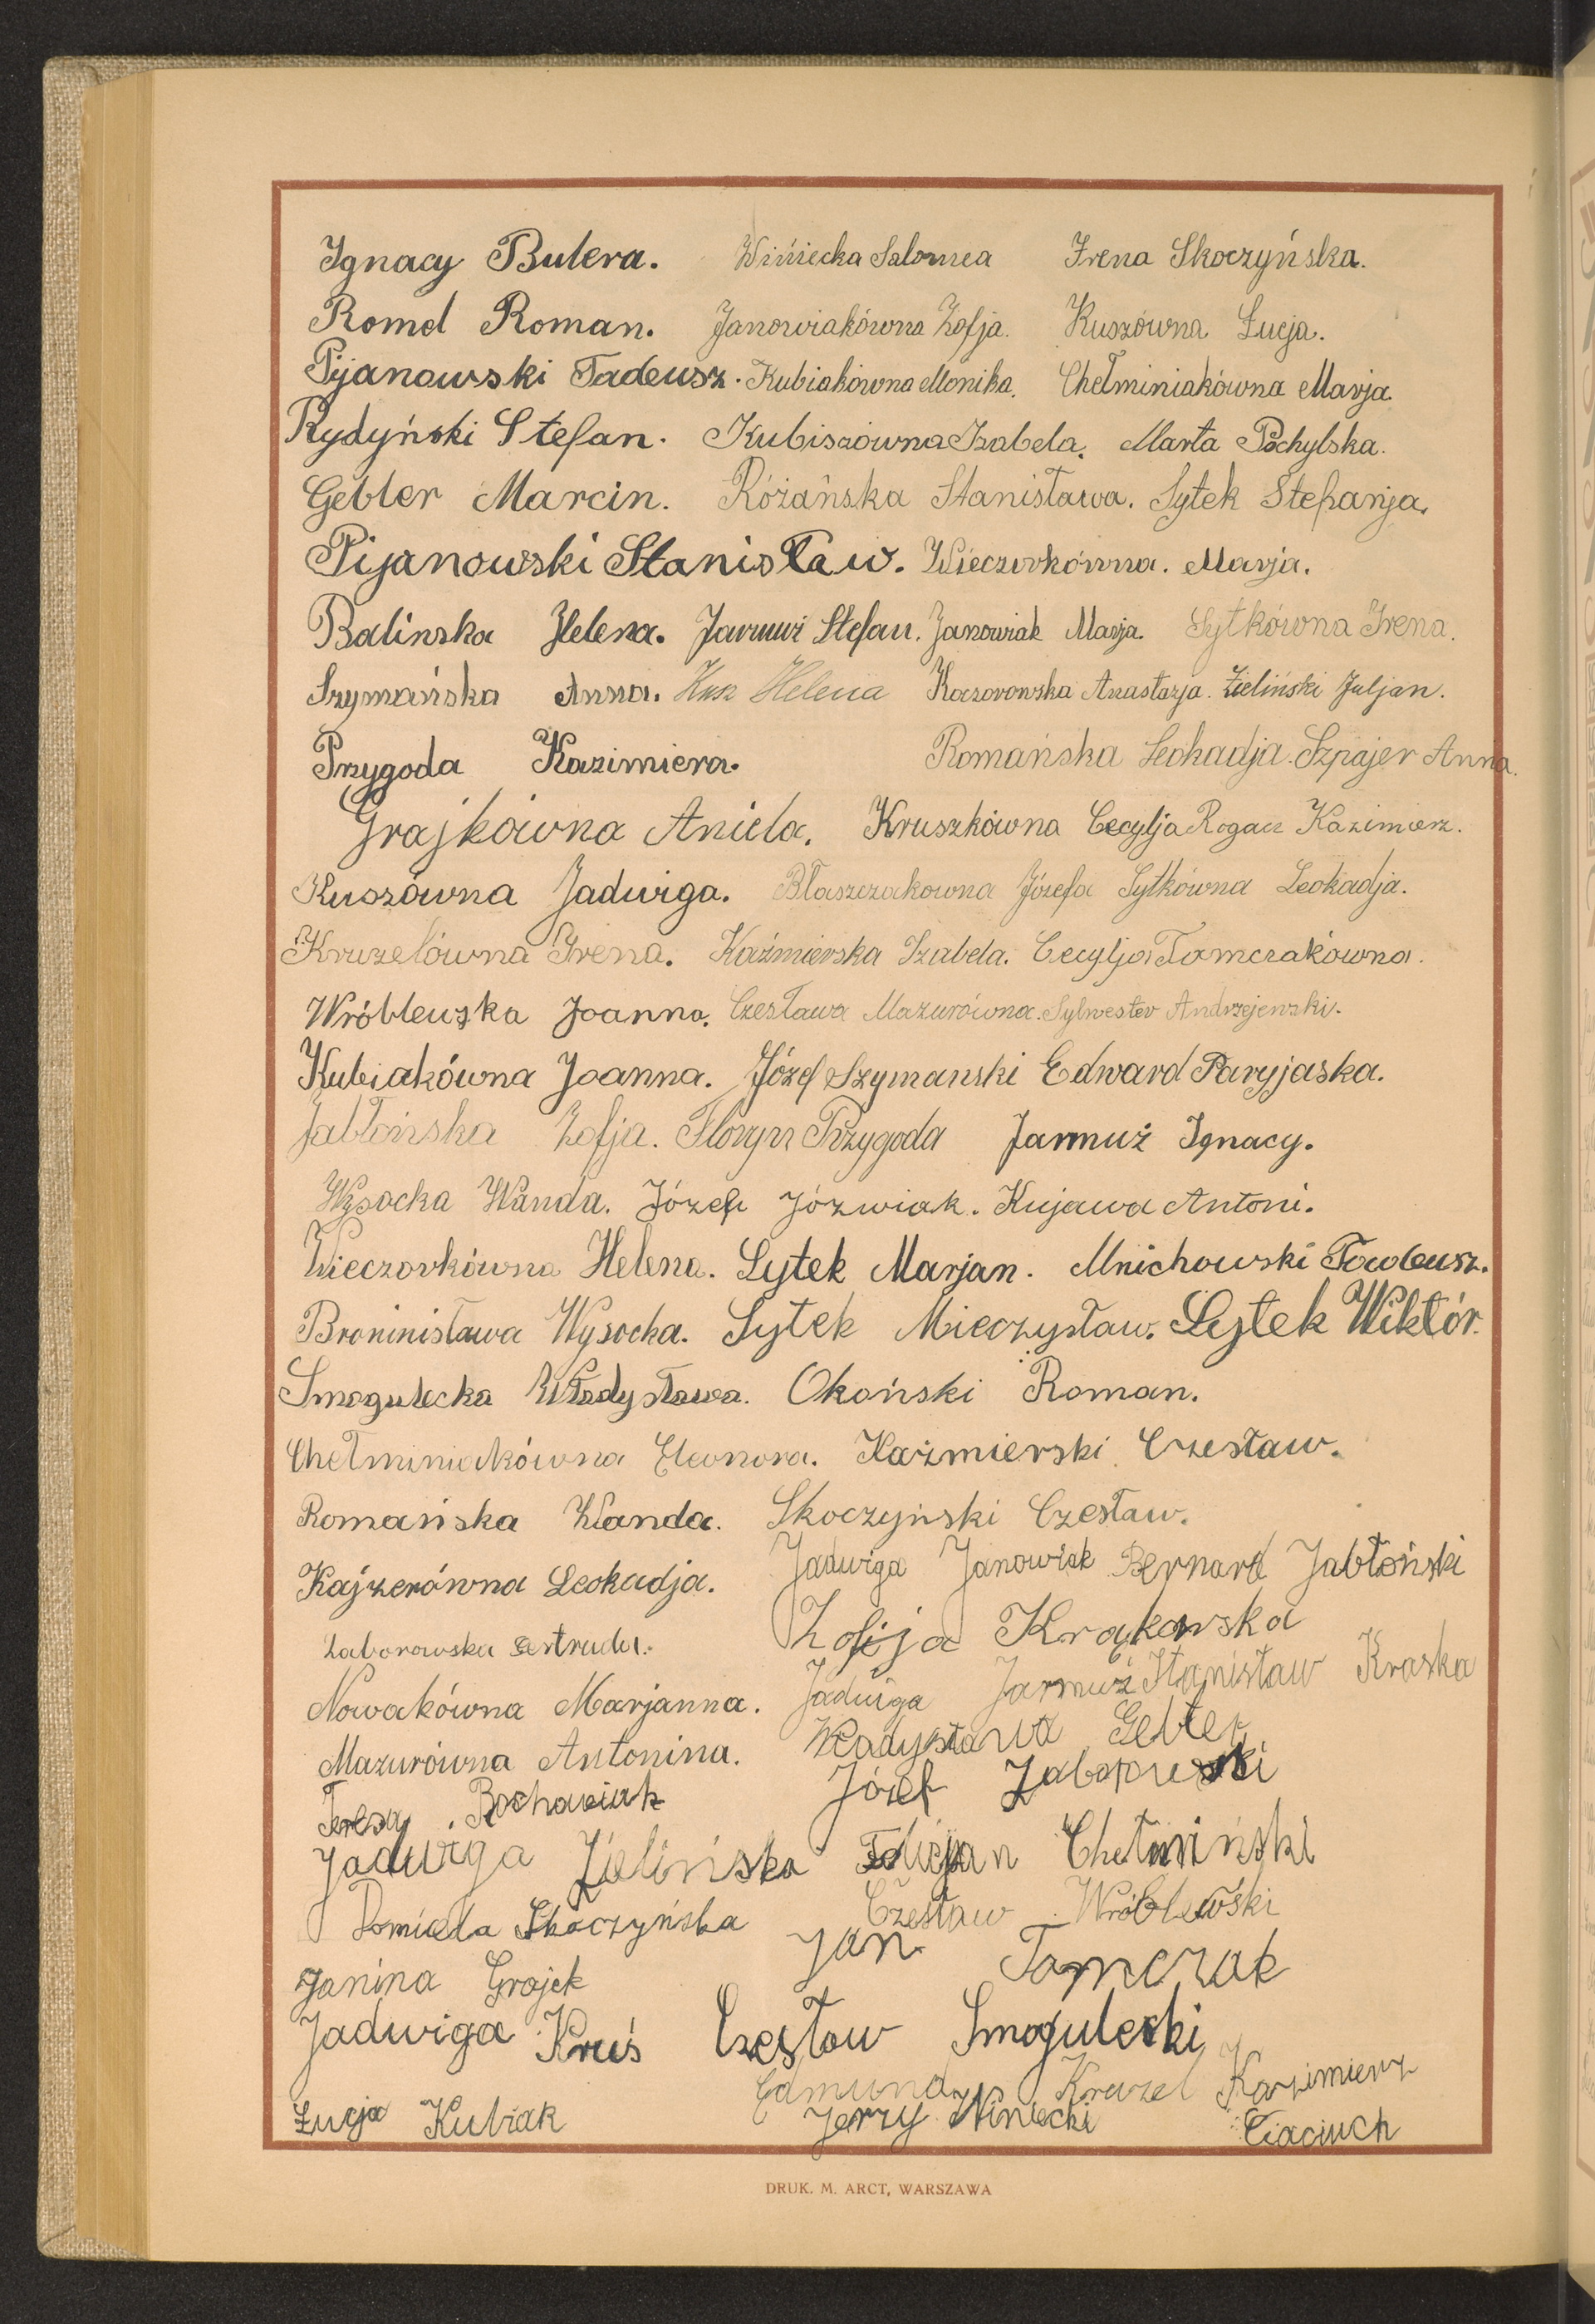 Ignacy Bulera. Winiecka Salomea Irena Skoczyńska.
Romel Roman. Janowiakówna Zofja. Kuszówna Łucja.
Pijanowski Tadeusz. Kubiakówna Monika. Chełminiakówna Marja.
Rydyński Stefan. Kubiszówna Izabela. Marta Pochylska.
Gebler Marcin. Różańska Stanisława. Sytek Stefanja.
Pijanowski Stanisław. Wieczorkówna. Marja.
Balinska Helena. Jarmuż Stefan. Janowiak Marja. Sytkówna Irena.
Szymańska Anna. Kusz Helena Kaczorowska Anastazja. Zieliński Juljan.
Przygoda Kazimiera. Romańska Leokadja. Szpajer Anna.
Grajkówna Aniela. Kruszkówna Cecylja Rogacz Kazimierz.
Kuszówna Jadwiga. Błaszczakowna Józefa Sytkówna Leokadja.
Kruzelówna Irena. Kaźmierska Izabela. Cecylja Tomczakówna.
Wróblewska Joanna. Czesława Mazurówna. Sylwester Andrzejewski.
Kubiakówna Joanna. Józef Szymanski Edward Paryjaska.
Jabłońska Zofja. Florjn Przygoda Jarmuż Ignacy.
Wysocka Wanda. Józef Józwiak. Kujawa Antoni.
Wieczorkówna Helena. Sytek Marjan. Mnichowski Tadeusz.
Broninisława Wysocka. Sytek Mieczysław. Sytek Wiktór.
Smogulecka Władysława. Okoński Roman.
Chełminiakówna Eleonora. Kaźmierski Czesław.
Romańska Wanda. Skoczyński Czesław.
Kajzerówna Leokadja. Jadwiga Janowiak Bernard Jabłoński
Zaborowska Gertruda. Zofija Krakowska
Nowakówna Marjanna. Jadwiga Jarmuż Stanisław Kraska
Mazurówna Antonina. Władysława Gebler
Teresa Bochaciak Józef Zaborowski
Jadwiga Zielińska Felicjan Chełmiński
Domicela Skoczyńska Czesław Wróblewski
Janina Grajek Jan Tomczak
Jadwiga Kruś Czesław Smogulecki
Edmund Kruzel Kazimierz
Łucja Kubiak Jerzy Winiecki Ciaciuch
DRUK. M. ARCT, WARSZAWA